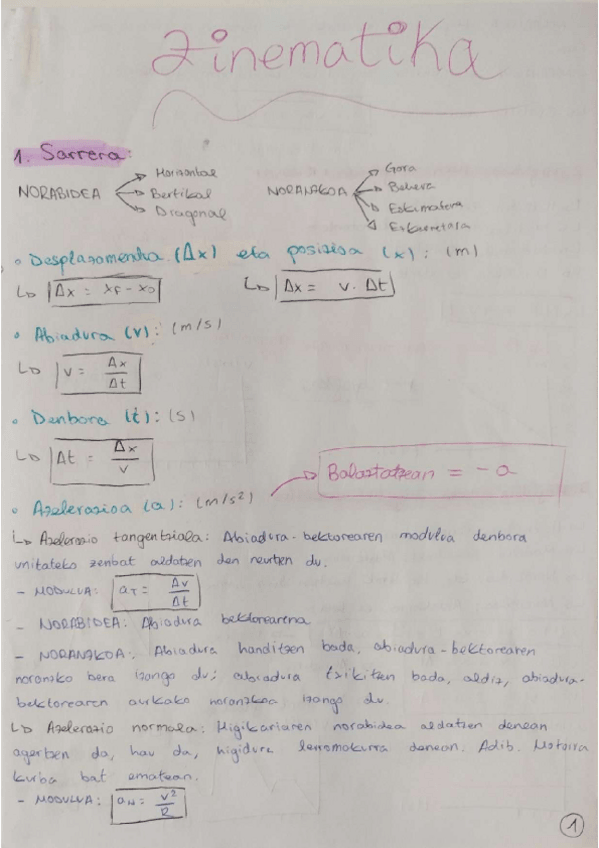 Zinematika
1. Sarrera:
NORABIDEA → Horizontal
→ Bertikal
→ Diagonal
NORANZKOA → Gora
→ Behera
→ Ezkerretara
• Desplazamendua (Δx) eta posizioa (x): (m)
↳ Δx = xF - x0
↳ Δx = v · Δt
• Abiadura (v): (m/s)
↳ v = Δx/Δt
• Denbora (t): (s)
↳ Δt = Δx/v
→ Balaztatzean = -a
• Azelerazioa (a): (m/s²)
↳ Azelerazio tangentziala: Abiadura-bektorearen modulua denbora
unitateko zenbat aldatzen den neurtzen du.
- MODULUA: aT = Δv/Δt
- NORABIDEA: Abiadura bektorearena
- NORANZKOA: Abiadura handitzen bada, abiadura-bektorearen
noranzko bera izango du; abiadura txikitzen bada, aldiz, abiadura-
bektorearen aurkako noranzkoa izango du.
↳ Azelerazio normala: Higikariaren norabidea aldatzen denean
agertzen da, hau da, higidura lerromakurra denean. Adib. Motorra
kurba bat ematean.
- MODULUA: aN = v²/R
1